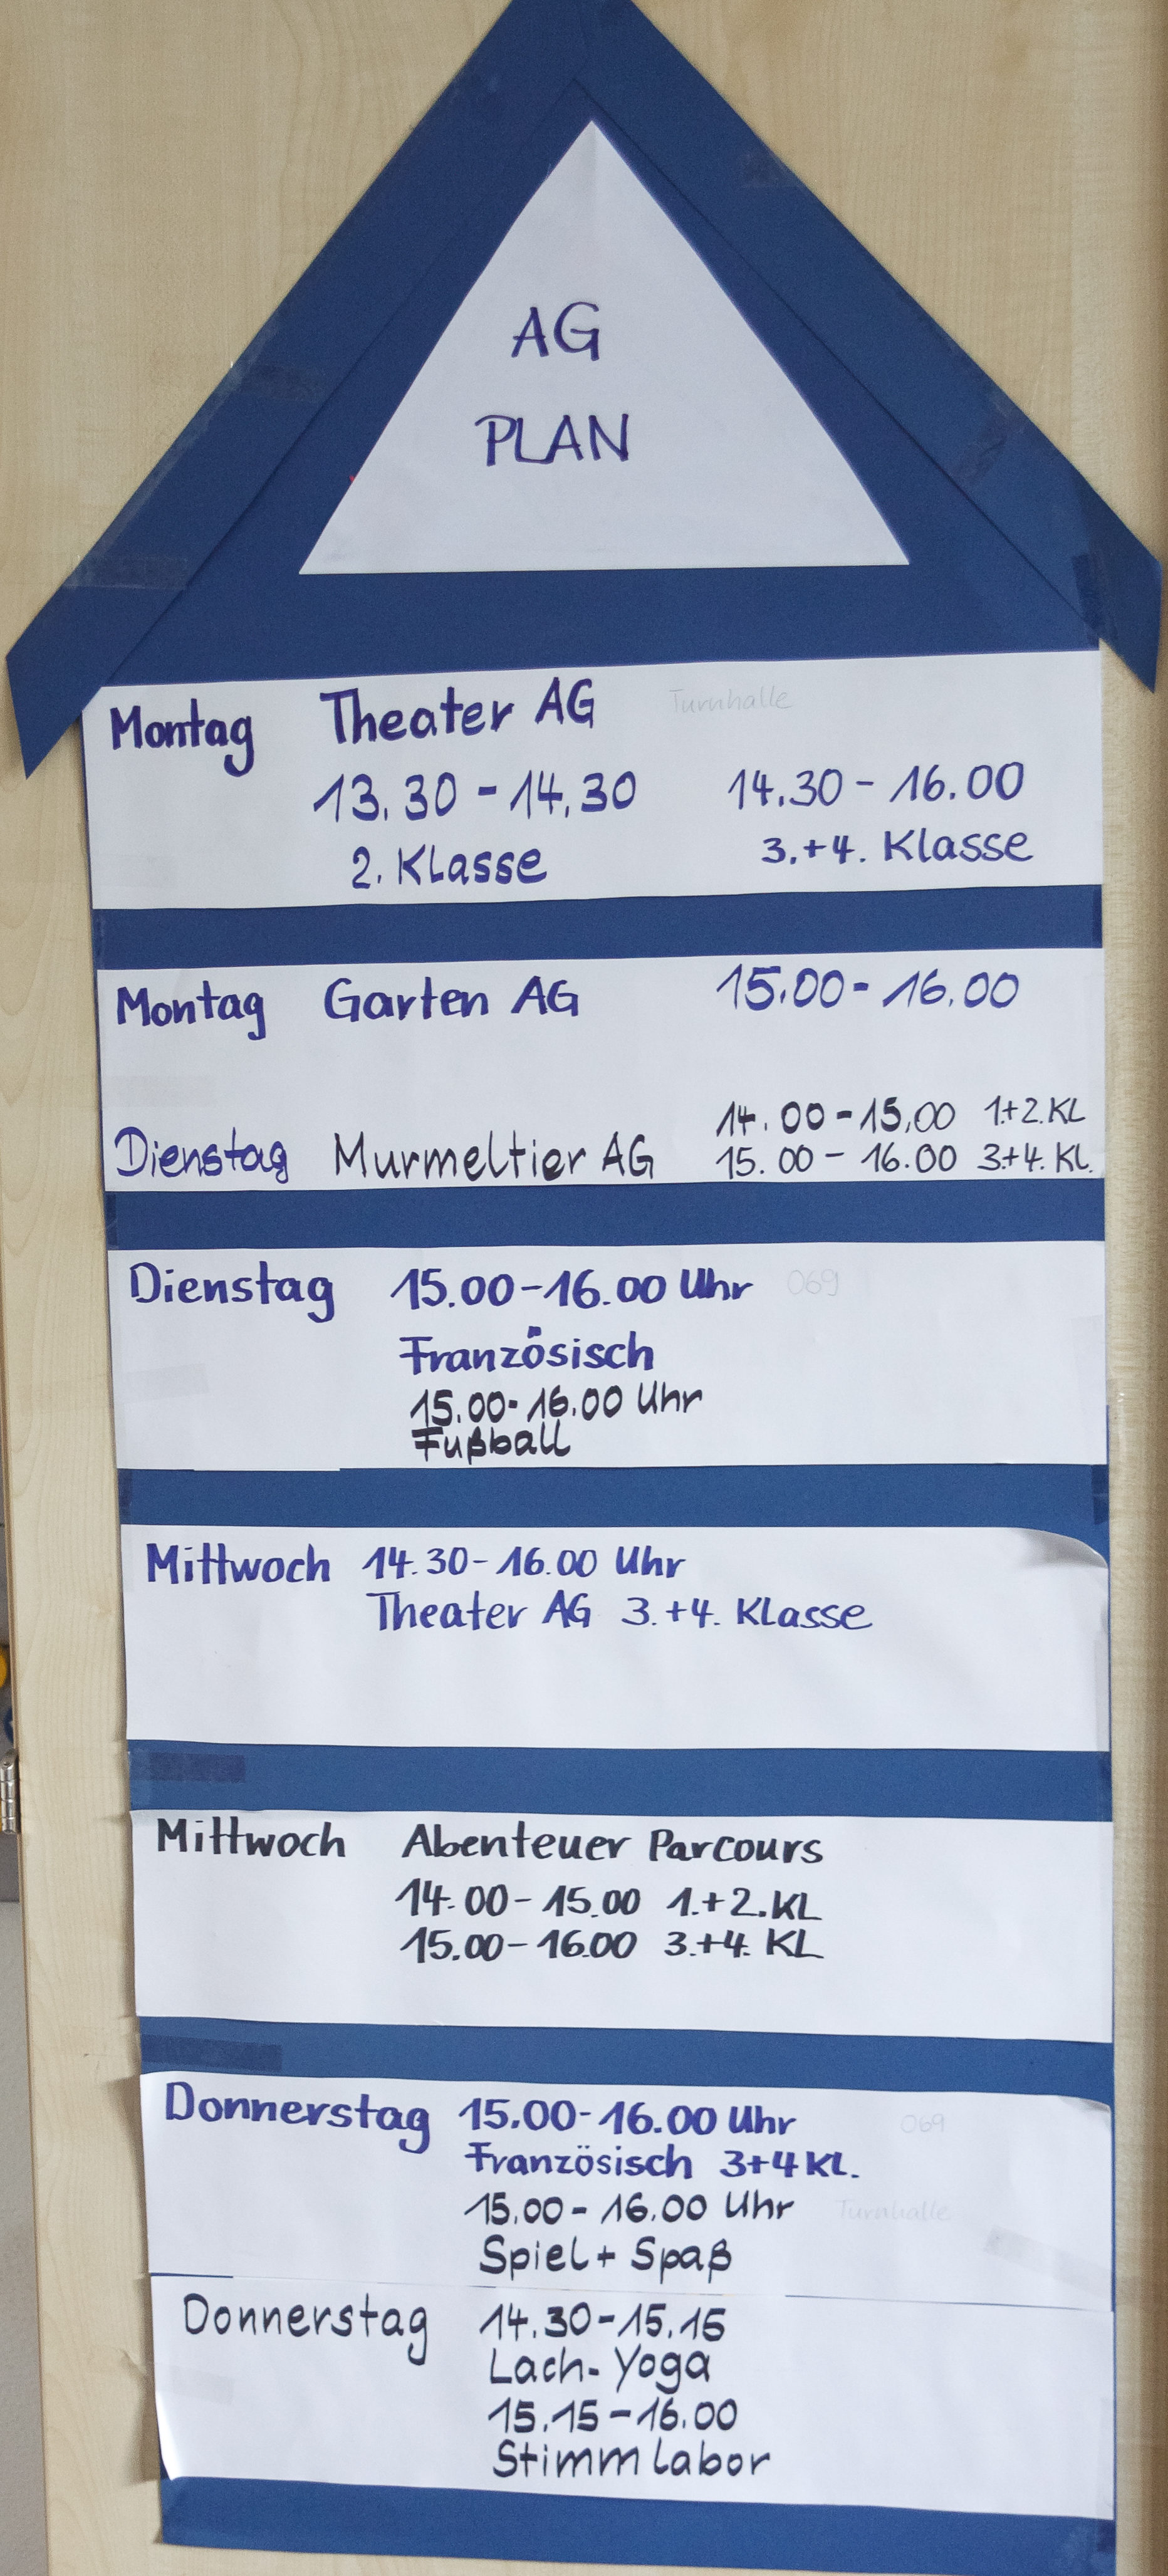 AG
PLAN
Montag Theater AG Turnhalle
13.30 - 14.30 14.30 - 16.00
2. Klasse 3.+4. Klasse
Montag Garten AG 15.00 - 16.00
14.00 - 15.00 1.+2. KL
Dienstag Murmeltier AG 15.00 - 16.00 3.+4. KL.
Dienstag 15.00 - 16.00 Uhr 069
Französisch
15.00 - 16.00 Uhr
Fußball
Mittwoch 14.30 - 16.00 Uhr
Theater AG 3.+4. Klasse
Mittwoch Abenteuer Parcours
14.00 - 15.00 1.+2. KL
15.00 - 16.00 3.+4. KL
Donnerstag 15.00 - 16.00 Uhr 069
Französisch 3+4 KL.
15.00 - 16.00 Uhr Turnhalle
Spiel + Spaß
Donnerstag 14.30 - 15.15
Lach-Yoga
15.15 - 16.00
Stimmlabor